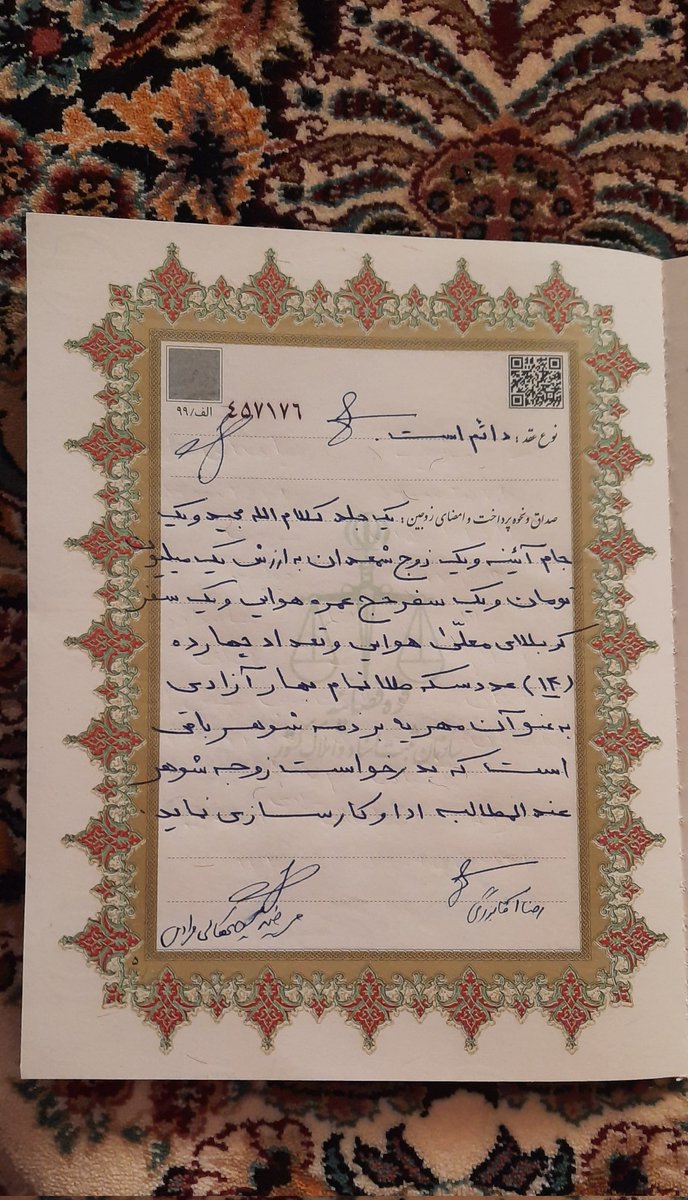 ۴۵۷۱۷۶ الف/۹۹
نوع عقد: دائم است.
صداق و نحوه پرداخت و امضای زوجین: یک جلد کلام الله مجید و یک
جام آئینه و یک زوج شمعدان به ارزش یک میلیون
تومان و یک سفر حج عمره هوایی و یک سفر
کربلای معلّیٰ هوایی و تعداد چهارده
(۱۴) عدد سکه طلا تمام بهار آزادی
به عنوان مهریه بر ذمه شوهر باقی
است که به درخواست زوجه شوهر
عند المطالبه ادا و کارسازی نماید.
رضا
۵